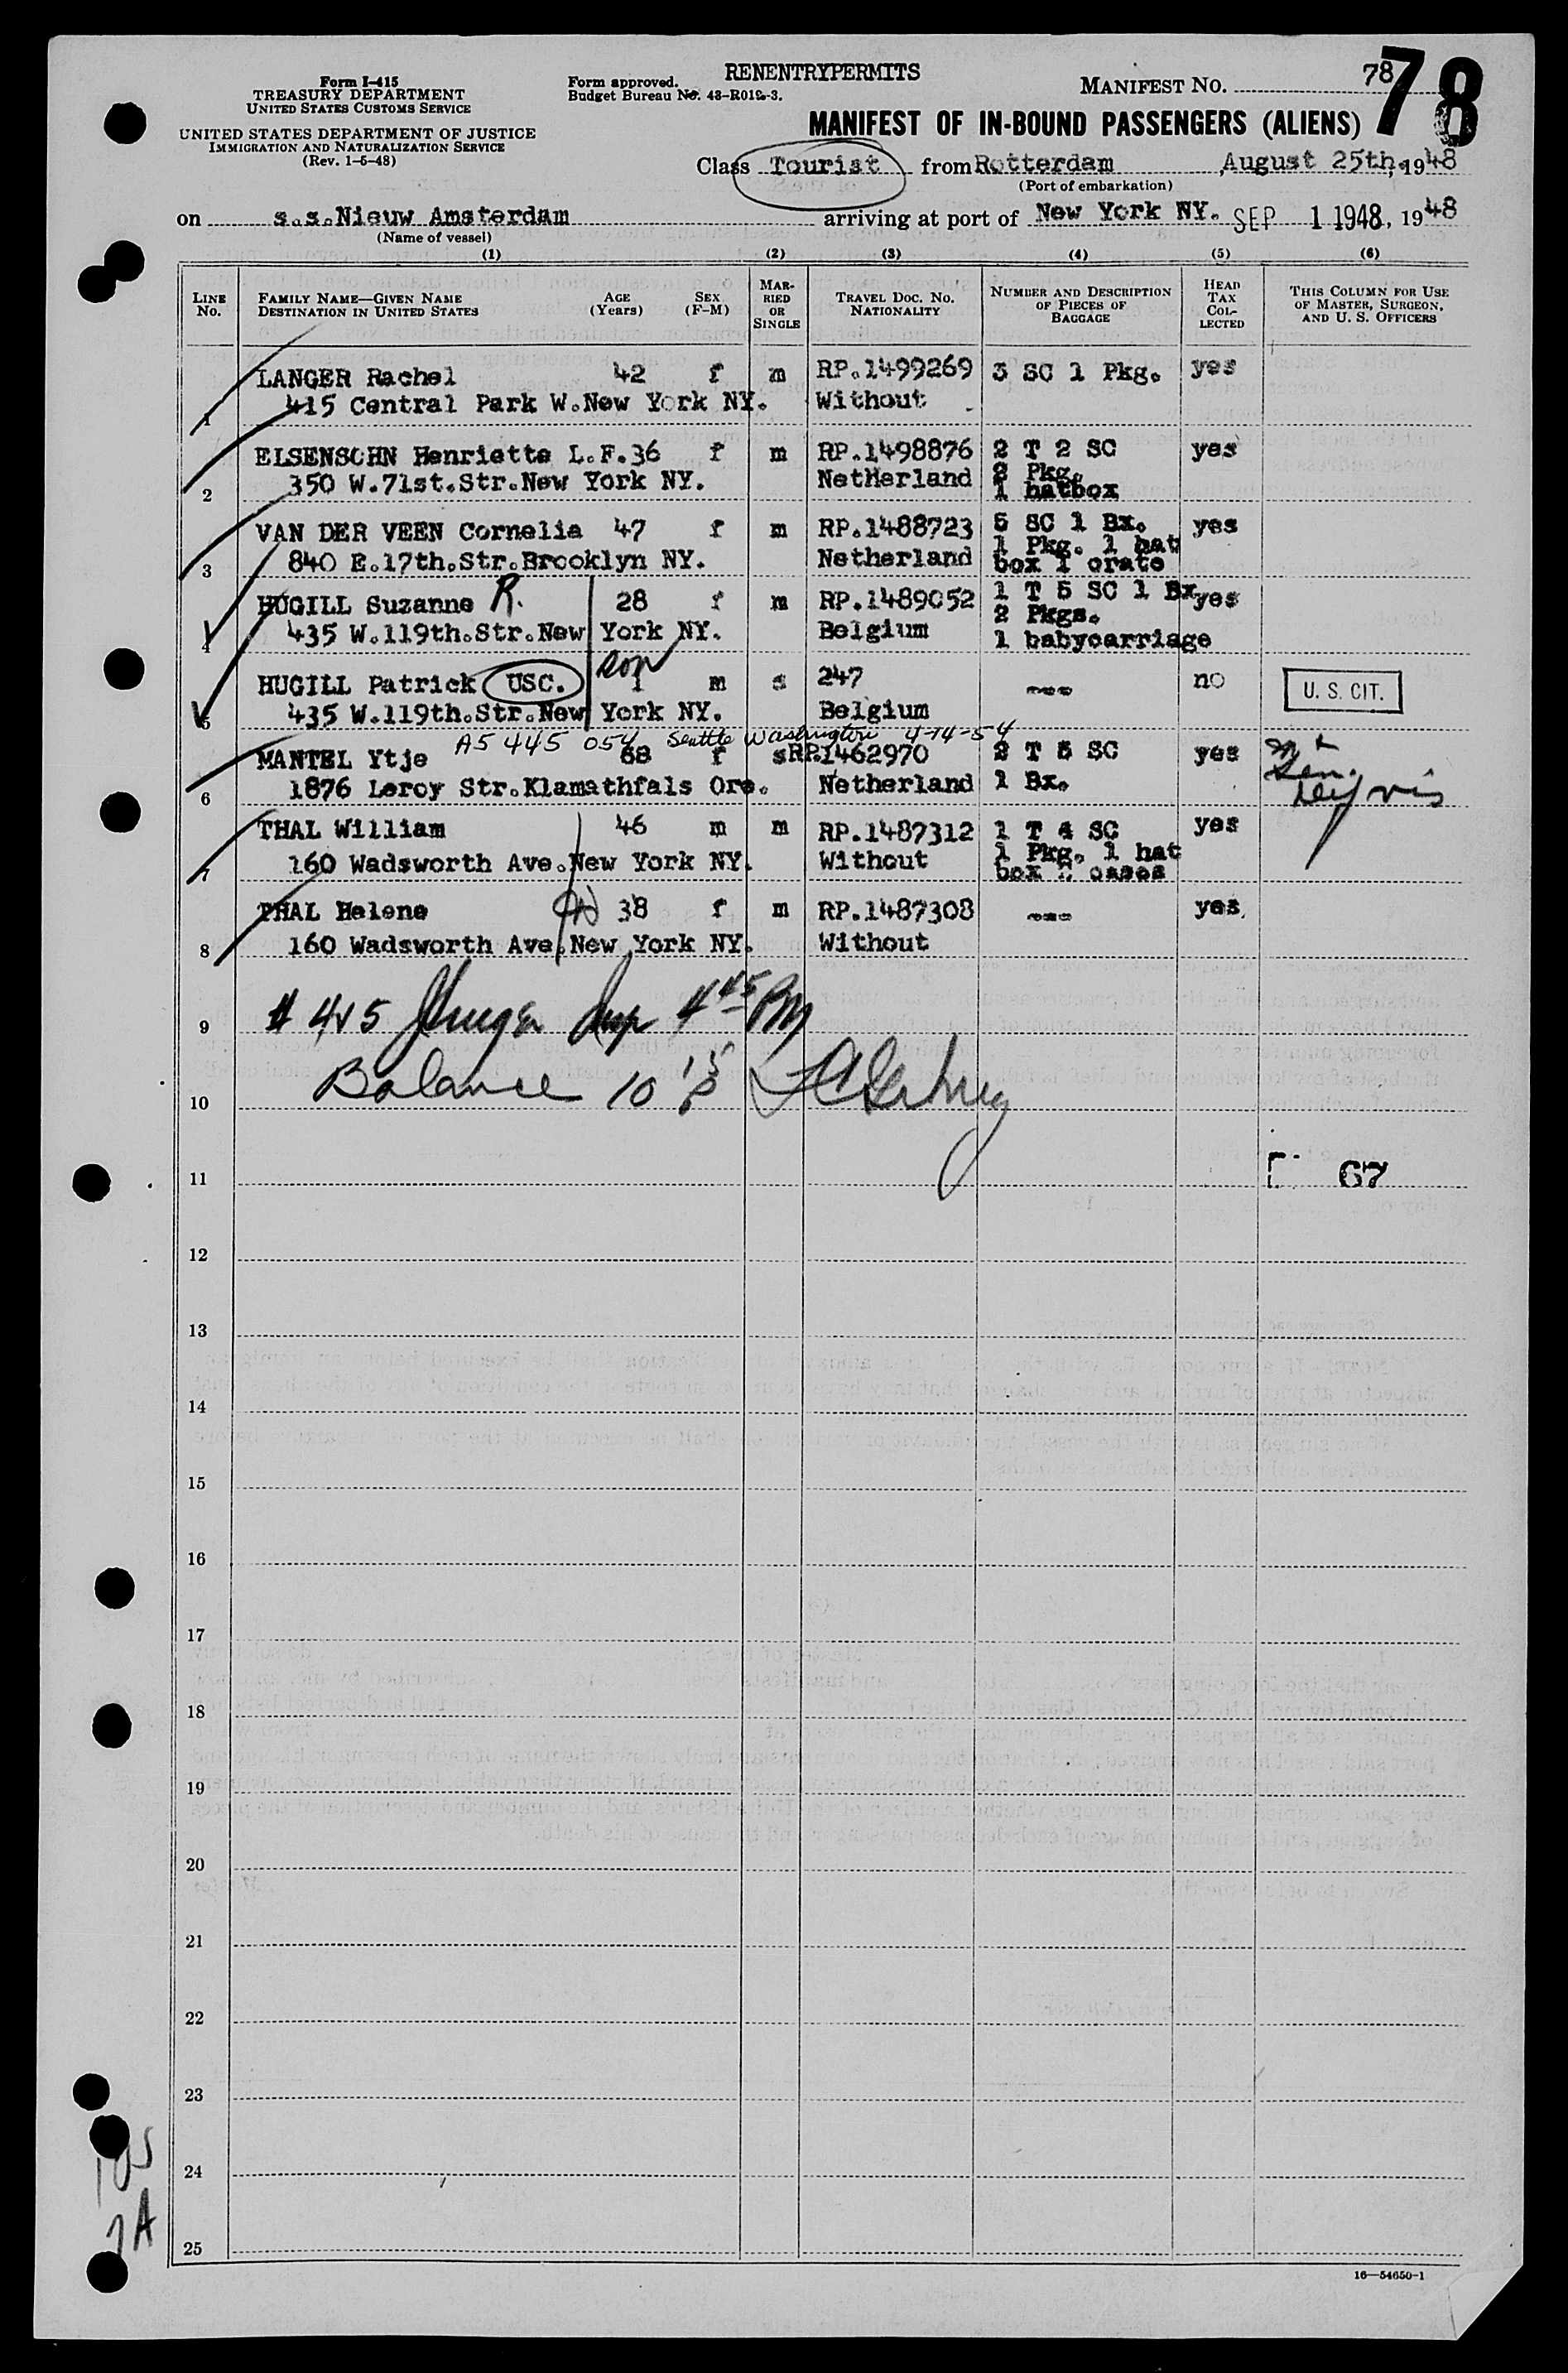 Form I-415
TREASURY DEPARTMENT
UNITED STATES CUSTOMS SERVICE
UNITED STATES DEPARTMENT OF JUSTICE
IMMIGRATION AND NATURALIZATION SERVICE
(Rev. 1-5-48)
Form approved.
Budget Bureau No. 43-R012-3.
RENENTRYPERMITS
MANIFEST NO. 78
78
MANIFEST OF IN-BOUND PASSENGERS (ALIENS)
Class Tourist from Rotterdam August 25th, 1948
(Port of embarkation)
on s.s.Nieuw Amsterdam arriving at port of New York NY. SEP 1 1948, 1948
(Name of vessel)
(1) (2) (3) (4) (5) (6)
LINE NO. FAMILY NAME—GIVEN NAME DESTINATION IN UNITED STATES AGE (Years) SEX (F-M) MARRIED OR SINGLE TRAVEL DOC. NO. NATIONALITY NUMBER AND DESCRIPTION OF PIECES OF BAGGAGE HEAD TAX COLLECTED THIS COLUMN FOR USE OF MASTER, SURGEON, AND U. S. OFFICERS
LANGER Rachel 42 f m RP.1499269 3 SC 1 Pkg. yes
1 415 Central Park W.New York NY. Without
ELSENSOHN Henriette L.F. 36 f m RP.1498876 2 T 2 SC yes
2 350 W.71st.Str.New York NY. Netherland 2 Pkg.
1 hatbox
VAN DER VEEN Cornelia 47 f m RP.1488723 5 SC 1 Bx. yes
3 840 E.17th.Str.Brooklyn NY. Netherland 1 Pkg. 1 hat
box 1 crate
HUGILL Suzanne R. 28 f m RP.1489052 1 T 5 SC 1 Bx. yes
4 435 W.119th.Str.New York NY. Belgium 2 Pkgs.
1 babycarriage
son
HUGILL Patrick USC. 1 m s 247 --- no U. S. CIT.
5 435 W.119th.Str.New York NY. Belgium
A5 445 054 Seattle Washington 4-14-54
MANTEL Ytje 68 f s RP.1462970 2 T 5 SC yes
6 1876 Leroy Str.Klamathfals Ore. Netherland 1 Bx.
THAL William 46 m m RP.1487312 1 T 4 SC yes
7 160 Wadsworth Ave.New York NY. Without 1 Pkg. 1 hat
box 2 cases
THAL Helene 38 f m RP.1487308 --- yes
8 160 Wadsworth Ave.New York NY. Without
9 4 45 PM
10 Balance 10
11 67
12
13
14
15
16
17
18
19
20
21
22
23
24
25
16—54650-1